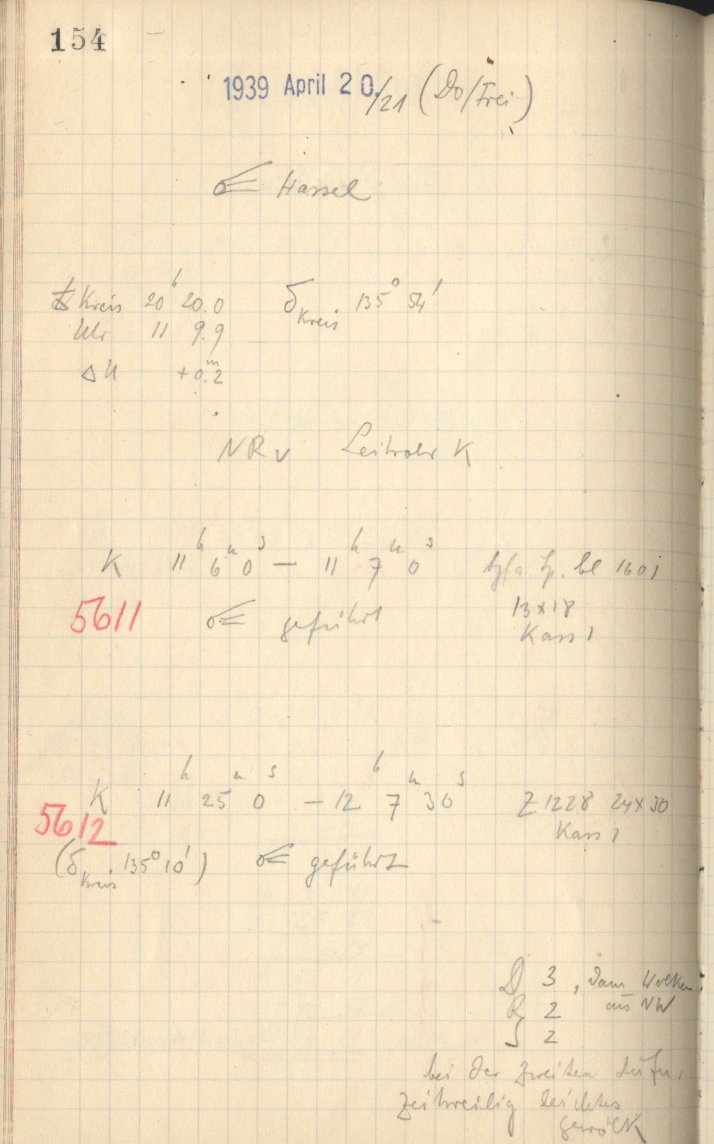 154
1939 April 20./21 (Do/Frei)
☄ Hassel
Kreis 20h 20.0 δKreis 135° 54'
Uhr 11 9.9
ΔU +0.m2
NRv Leitrohr K
K 11h 6m 0s — 11h 7m 0s bl 1601
13x18
5611 ☄ geführt
Kass 1
K 11h 25m 0s — 12h 7m 30s Z 1228 24x30
5612 Kass 1
(δKreis 135° 10') ☄ geführt
D 3, dann Wolken
R 2 aus NW
S 2
bei der zweiten Aufn.
zeitweilig leichtes
gewölk